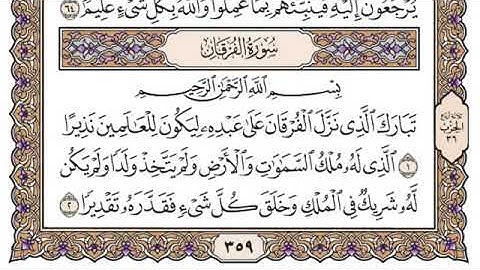 يُرْجَعُونَ إِلَيْهِ فَيُنَبِّئُهُم بِمَا عَمِلُوا۟ وَٱللَّهُ بِكُلِّ شَىْءٍ عَلِيمٌۢ ٦٤
سُورَةُ الفُرْقَانِ
بِسْمِ ٱللَّهِ ٱلرَّحْمَٰنِ ٱلرَّحِيمِ
تَبَارَكَ ٱلَّذِى نَزَّلَ ٱلْفُرْقَانَ عَلَىٰ عَبْدِهِۦ لِيَكُونَ لِلْعَٰلَمِينَ نَذِيرًا
١ ٱلَّذِى لَهُۥ مُلْكُ ٱلسَّمَٰوَٰتِ وَٱلْأَرْضِ وَلَمْ يَتَّخِذْ وَلَدًا وَلَمْ يَكُن
لَّهُۥ شَرِيكٌ فِى ٱلْمُلْكِ وَخَلَقَ كُلَّ شَىْءٍ فَقَدَّرَهُۥ تَقْدِيرًا ٢
الحِزْب
٣٦
٣٥٩